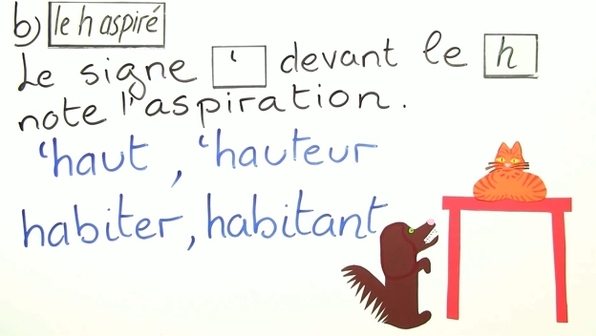 b) le h aspiré
Le signe ‘ devant le h
note l'aspiration.
‘haut, ‘hauteur
habiter, habitant